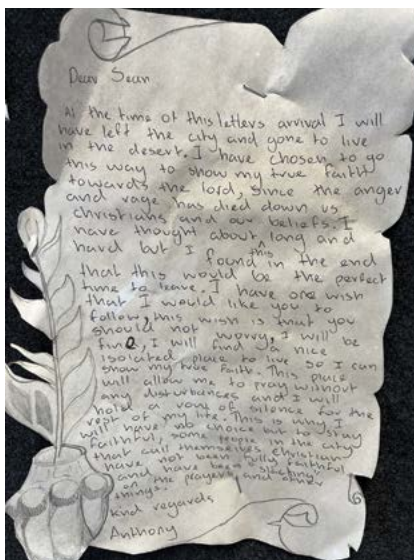 Dear Sean
At the time of this letters arrival I will
have left the city and gone to live
in the desert. I have chosen to go
this way to show my true faith
towards the lord, since the anger
and rage has died down us
christians and our beliefs. I
have thought about this long and
hard but I found in the end
that this would be the perfect
time to leave. I have one wish
that I would like you to
follow, this wish is that you
should not worry, I will be
fine, I will find a nice
isolated place to live so I can
show my true faith. This place
will allow me to pray without
any disturbances and I will
hold a vow of silence for the
rest of my life. This is why I
will have no choice but to stay
faithful, some people in the city
that call themselves christian
have not been fully faithful
and have been "slacking"
on the prayers and other
things.
kind regards
Anthony